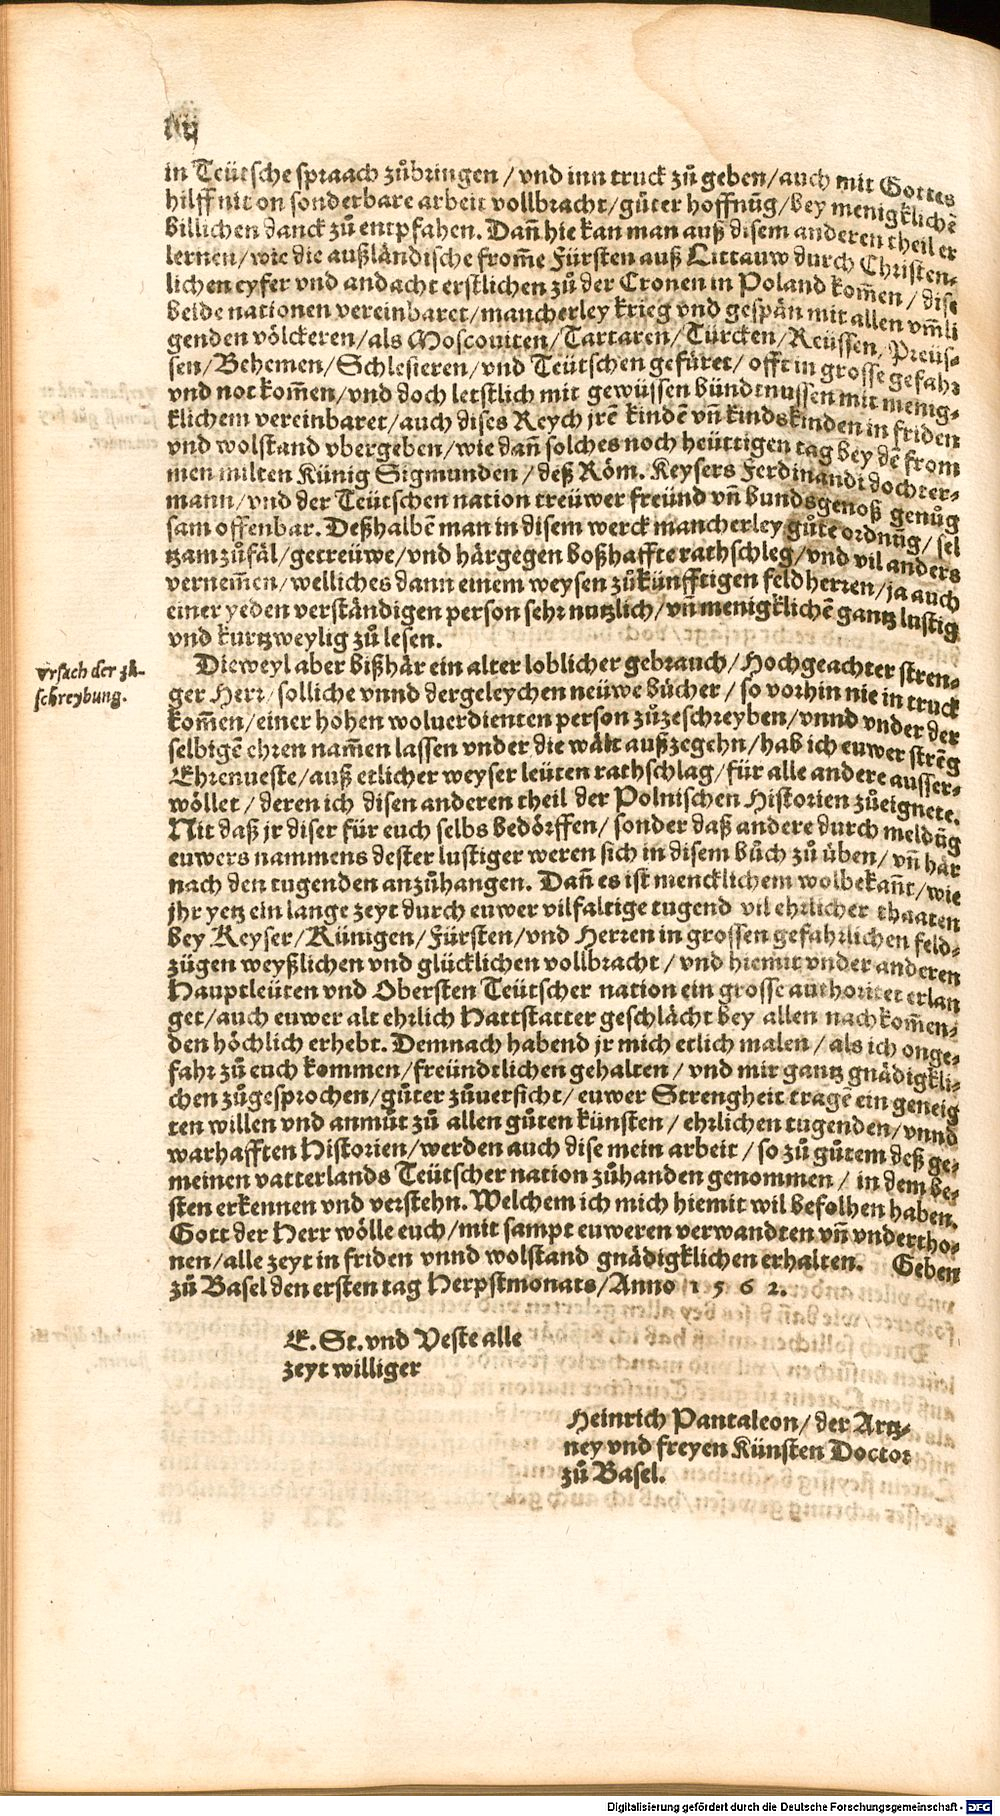 in Teütsche spraach zůbringen / vnd inn truck zů geben / auch mit Gottes
hilff nit on sonderbare arbeit vollbracht / gůter hoffnūg / bey menigklichē
billichen danck zů entpfahen. Dañ hie kan man auß disem anderen theil er
lernen / wie die außländische from̄e Fürsten auß Littauw durch Christen-
lichen eyfer vnd andacht erstlichen zů der Cronen in Poland kom̄en / dise
beide nationen vereinbaret / mancherley krieg vnd gespän mit allen vm̄li
genden völckeren / als Moscouiten / Tartaren / Türcken / Reüssen / Preüs-
sen / Behemen / Schlesieren / vnd Teütschen gefüret / offt in grosse gefahr
vnd not kom̄en / vnd doch letstlich mit gewüssen bündtnussen mit menig-
klichem vereinbaret / auch dises Reych jrē kindē vñ kindskinden in friden
vnd wolstand vbergeben / wie dañ solches noch heüttigen tag bey dē from
men milten Künig Sigmunden / deß Röm. Keysers Ferdinandi dochter-
mann / vnd der Teütschen nation treüwer freünd vñ bundsgenoß genůg
sam offenbar. Deßhalbē man in disem werck mancherley gůte ordnūg / sel
tzam zůfäl / getreüwe / vnd härgegen boßhaffte rathschleg / vnd vil anders
vernem̄en / welliches dann einem weysen zůkünfftigen feldherren / ja auch
einer yeden verständigen person sehr nutzlich / vñ menigklichē gantz lustig
vnd kurtzweylig zů lesen.
vrsach der zů-
schreybung.
Dieweyl aber bißhär ein alter loblicher gebrauch / Hochgeachter stren-
ger Herr / solliche vnnd dergeleychen neüwe bücher / so vorhin nie in truck
kom̄en / einer hohen woluerdienten person zůzeschreyben / vnnd vnder der
selbigē ehren nam̄en lassen vnder die wält außzegehn / hab ich euwer strēg
Ehrenueste / auß etlicher weyser leüten rathschlag / für alle andere ausser-
wöllet / deren ich disen anderen theil der Polnischen Historien zůeignete.
Nit daß jr diser für euch selbs bedörffen / sonder daß andere durch meldūg
euwers nammens dester lustiger weren sich in disem bůch zů üben / vñ här
nach den tugenden anzůhangen. Dañ es ist mencklichem wolbekañt / wie
jhr yetz ein lange zeyt durch euwer vilfaltige tugend vil ehrlicher thaaten
bey Keyser / Künigen / Fürsten / vnd Herren in grossen gefahrlichen feld-
zügen weyßlichen vnd glücklichen vollbracht / vnd hiemit vnder anderen
Hauptleüten vnd Obersten Teütscher nation ein grosse authoritet erlan
get / auch euwer alt ehrlich Hattstatter geschlächt bey allen nachkom̄en-
den höchlich erhebt. Demnach habend jr mich etlich malen / als ich onge-
fahr zů euch kommen / freündtlichen gehalten / vnd mir gantz gnädigkli-
chen zůgesprochen / gůter zůuersicht / euwer Strengheit tragē ein geneig
ten willen vnd anmůt zů allen gůten künsten / ehrlichen tugenden / vnnd
warhafften Historien / werden auch dise mein arbeit / so zů gůtem deß ge-
meinen vatterlands Teütscher nation zůhanden genommen / in dem be-
sten erkennen vnd verstehn. Welchem ich mich hiemit wil befolhen haben.
Gott der Herr wölle euch / mit sampt euweren verwandten vñ vndertho-
nen / alle zeyt in friden vnnd wolstand gnädigklichen erhalten. Geben
zů Basel den ersten tag Herpstmonats / Anno 1 5 6 2.
E. St. vnd Veste alle
zeyt williger
Heinrich Pantaleon / der Artz-
ney vnd freyen Künsten Doctor
zů Basel.
Digitalisierung gefördert durch die Deutsche Forschungsgemeinschaft - DFG